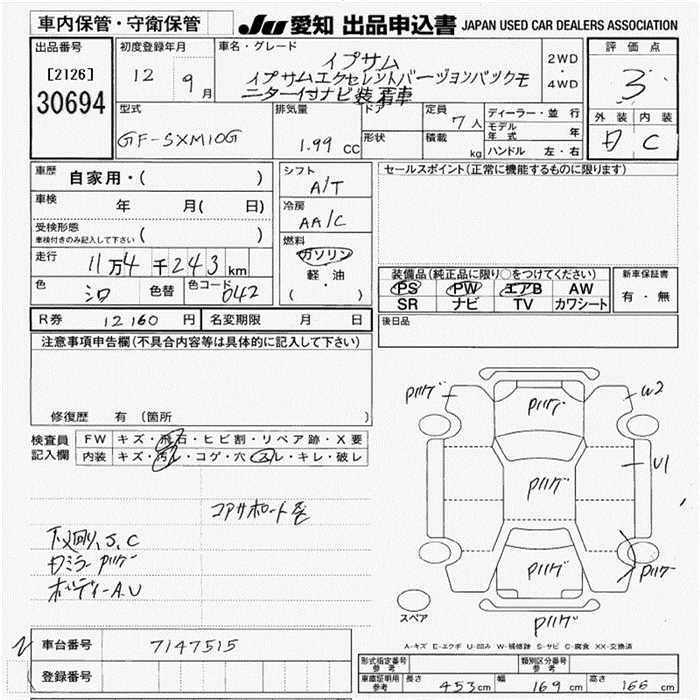 車内保管・守衛保管
JU 愛知 出品申込書 JAPAN USED CAR DEALERS ASSOCIATION
出品番号
[2126]
30694
初度登録年月
12 9月
車名・グレード
イプサム
イプサムエクセレントバージョンバックモ
ニター付ナビ装着車
2WD
・
4WD
評価点
3
外装 内装
D C
型式
GF-SXM10G
排気量
1.99 CC
ドア
形状
定員 7人
積載 kg
ディーラー・並行
モデル年式 年
ハンドル 左・右
車歴
自家用・( )
車検 年 月( 日)
受検形態
車検付きのみ記入して下さい ( )
走行 11万4千243km
色 シロ 色替 色コード 042
シフト
A/T
冷房
AA/C
燃料
ガソリン
軽・油
( ・ )
セールスポイント(正常に機能するものに限ります)
装備品(純正品に限り○をつけてください)
PS PW エアB AW
SR ナビ TV カワシート
新車保証書
有・無
R券 12160円 名変期限 月 日
後日品
注意事項申告欄(不具合内容等は具体的に記入して下さい)
修復歴 有 (箇所
検査員
記入欄
FW キズ・飛石・ヒビ割・リペア跡・X要
内装 キズ・汚レ・コゲ・穴・スレ・キレ・破レ
コアサポート
下廻り、S、C
Dミラー Pハゲ
ボディーA.U
Pハゲ
W2
Pハゲ
U1
Pハゲ
Pハゲ
Pハゲ
Pハゲ
スペア
A-キズ E-エクボ U-凹み W-補修跡 S-サビ C-腐食 XX-交換済
車台番号 7147515
登録番号
形式指定番号
参考
類別区分番号
参考
車庫証明用
参考
長さ 453cm 幅 169cm 高さ 166cm